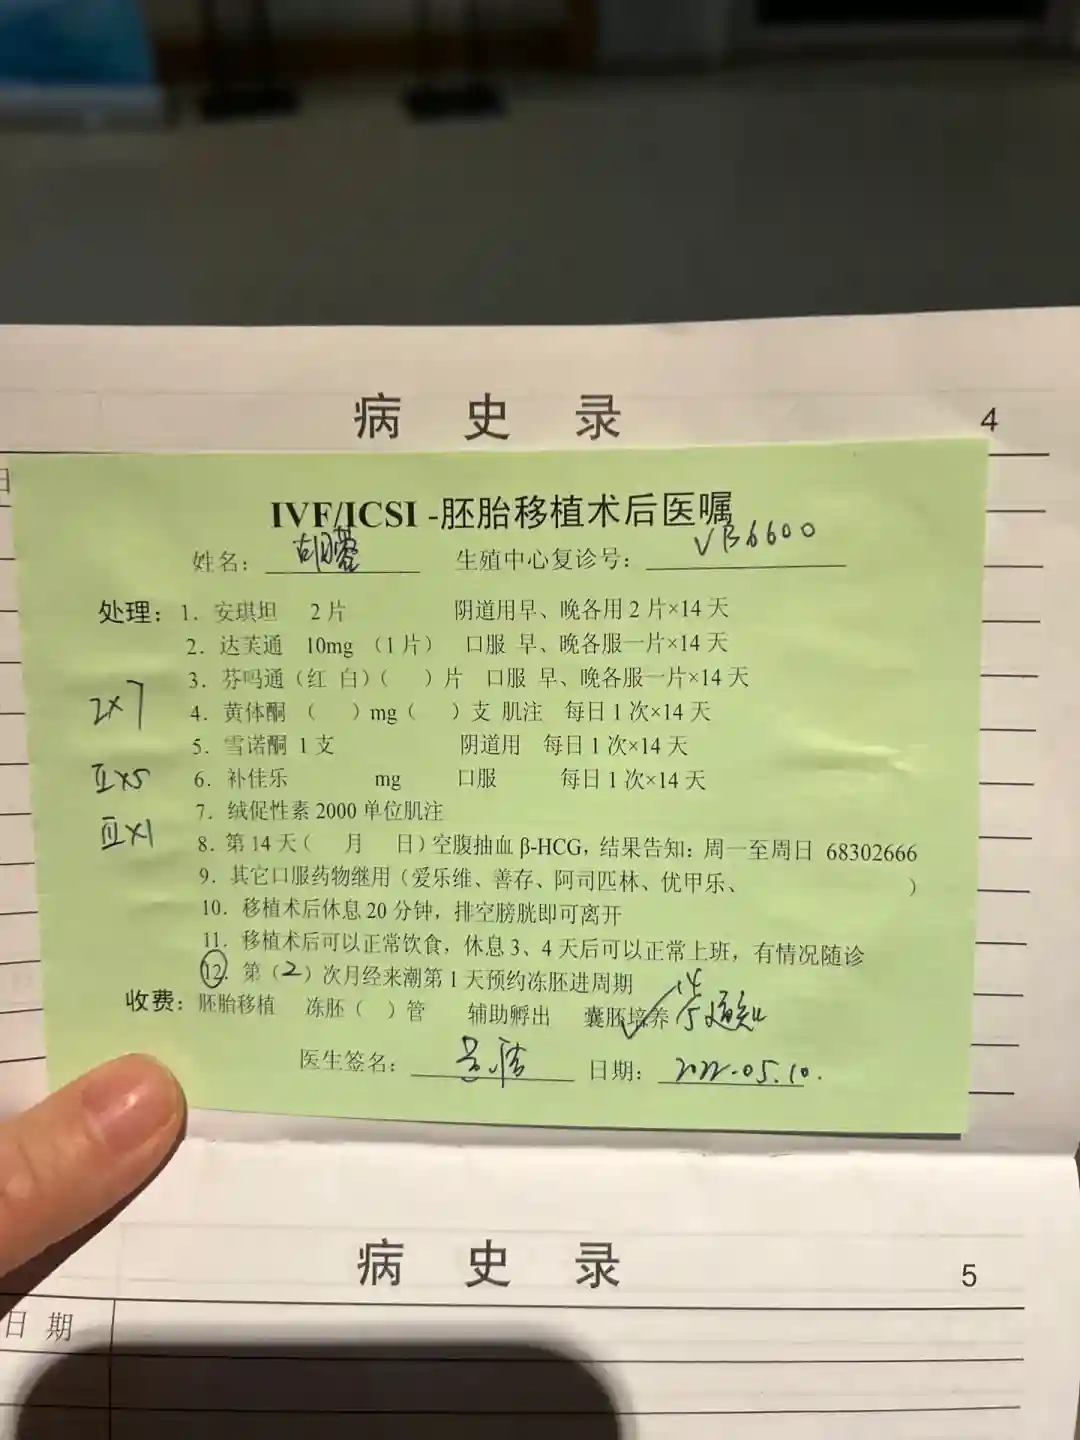 病 史 录 4
日
IVF/ICSI -胚胎移植术后医嘱
姓名: 胡蓉 生殖中心复诊号: VB6600
处理: 1. 安琪坦 2 片 阴道用早、晚各用 2 片×14 天
2. 达芙通 10mg (1 片) 口服 早、晚各服一片×14 天
3. 芬吗通 (红 白) ( ) 片 口服 早、晚各服一片×14 天
2×7 4. 黄体酮 ( )mg ( ) 支 肌注 每日 1 次×14 天
5. 雪诺酮 1 支 阴道用 每日 1 次×14 天
II×5 6. 补佳乐 mg 口服 每日 1 次×14 天
7. 绒促性素 2000 单位肌注
III×1 8. 第 14 天 ( 月 日) 空腹抽血 β-HCG, 结果告知: 周一至周日 68302666
9. 其它口服药物继用 (爱乐维、善存、阿司匹林、优甲乐、 )
10. 移植术后休息 20 分钟, 排空膀胱即可离开
11. 移植术后可以正常饮食, 休息 3、4 天后可以正常上班, 有情况随诊
12. 第 (2) 次月经来潮第 1 天预约冻胚进周期
收费: 胚胎移植 冻胚 ( ) 管 辅助孵出 囊胚培养 通知
医生签名: 日期: 2022.05.10.
病 史 录 5
日 期